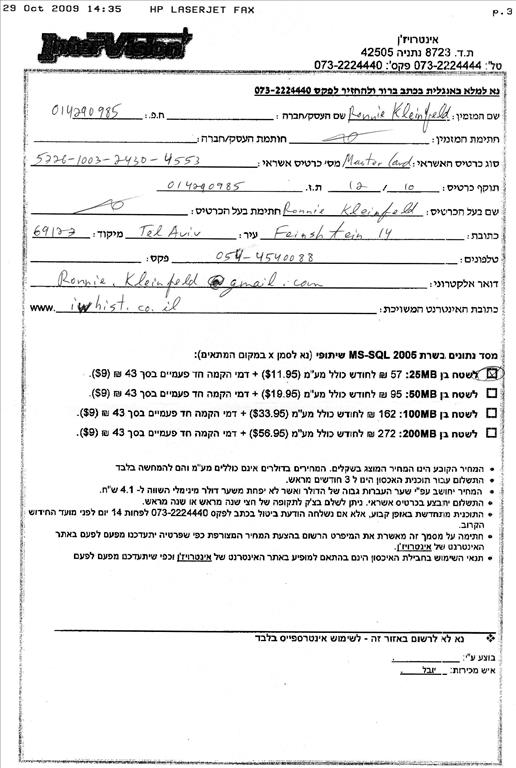 29 Oct 2009 14:35 HP LASERJET FAX p.3
InterVision
אינטרויז'ן
ת.ד. 8723 נתניה 42505
טל': 073-2224444 פקס: 073-2224440
נא למלא באנגלית בכתב ברור ולהחזיר לפקס 073-2224440
שם המזמין: Ronnie Kleinfeld שם העסק/חברה: ח.פ.: 014290985
חתימת המזמין: חותמת העסק/חברה:
סוג כרטיס האשראי: Master Card מס' כרטיס אשראי: 5226-1003-2430-4553
תוקף כרטיס: 10 / 12 ת.ז. 014290985
שם בעל הכרטיס: Ronnie Kleinfeld חתימת בעל הכרטיס:
כתובת: Feinshtein 14 עיר: Tel Aviv מיקוד: 69122
טלפונים: 054-4540088 פקס:
דואר אלקטרוני: Ronnie.Kleinfeld@gmail.com
כתובת האינטרנט המשויכת: www. iwhist.co.il
מסד נתונים בשרת MS-SQL 2005 שיתופי (נא לסמן x במקום המתאים):
לשטח בן 25MB: 57 ₪ לחודש כולל מע"מ ($11.95) + דמי הקמה חד פעמיים בסך 43 ₪ ($9).
לשטח בן 50MB: 95 ₪ לחודש כולל מע"מ ($19.95) + דמי הקמה חד פעמיים בסך 43 ₪ ($9).
לשטח בן 100MB: 162 ₪ לחודש כולל מע"מ ($33.95) + דמי הקמה חד פעמיים בסך 43 ₪ ($9).
לשטח בן 200MB: 272 ₪ לחודש כולל מע"מ ($56.95) + דמי הקמה חד פעמיים בסך 43 ₪ ($9).
• המחיר הקובע הינו המחיר המוצג בשקלים. המחירים בדולרים אינם כוללים מע"מ והם להמחשה בלבד
• התשלום עבור תוכנית האכסון הינו ל 3 חודשים מראש.
• המחיר יחושב עפ"י שער העברות גבוה של הדולר ואשר לא יפחת משער דולר מינימלי השווה ל- 4.1 ש"ח.
• התשלום יתבצע בכרטיס אשראי. ניתן לשלם בצ'ק לתקופה של חצי שנה מראש או שנה מראש.
• התוכנית מתחדשת באופן קבוע, אלא אם נשלחה הודעת ביטול בכתב לפקס 073-2224440 לפחות 14 יום לפני מועד החידוש הקרוב.
• חתימה על מסמך זה מאשרת את המיפרט הרשום בהצעת המחיר המצורפת כפי שפרטיה יתעדכנו מפעם לפעם באתר האינטרנט של אינטרויז'ן.
• תנאי השימוש בחבילת האיכסון הינם בהתאם למופיע באתר האינטרנט של אינטרויז'ן וכפי שיתעדכנו מפעם לפעם
❖ נא לא לרשום באזור זה - לשימוש אינטרספייס בלבד
בוצע ע"י:
איש מכירות: יובל